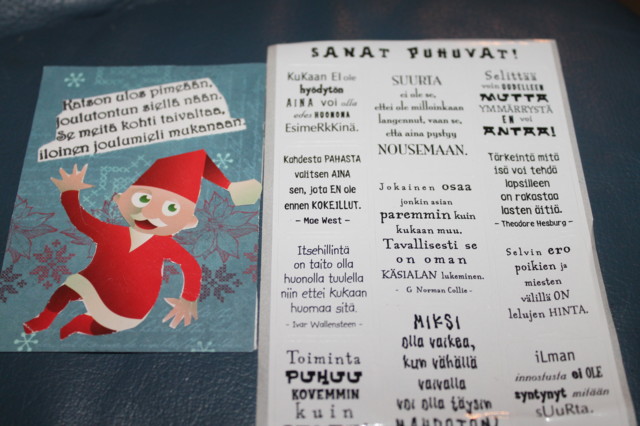 Katson ulos pimeään,
joulutontun siellä nään.
Se meitä kohti taivaltaa,
iloinen joulumieli mukanaan.
SANAT PUHUVAT!
KuKaan Ei ole
hyödytön
AINA voi olla
edes HUONONA
EsimeRkKinä.
Kahdesta PAHASTA
valitsen AINA
sen, jota EN ole
ennen KOKEILLUT.
- Mae West -
Itsehillintä
on taito olla
huonolla tuulella
niin ettei kukaan
huomaa sitä.
- Ivar Wallensteen -
Toiminta
PUHUU
KOVEMMIN
kuin
SUURIA
ei ole se,
ettei ole milloinkaan
langennut, vaan se,
että aina pystyy
NOUSEMAAN.
Jokainen osaa
jonkin asian
paremmin kuin
kukaan muu.
Tavallisesti se
on oman
KÄSIALAN lukeminen.
- G Norman Collie -
MIKSI
olla vaikea,
kun vähällä
vaivalla
voi olla täysin
MAHDOTON!
Selittää
voin UUDELLEEN
MUTTA
YMMÄRRYSTÄ
EN voi
ANTAA!
Tärkeintä mitä
isä voi tehdä
lapsilleen
on rakastaa
lasten äitiä.
- Theodore Hesburg -
Selvin ero
poikien ja
miesten
välillä ON
lelujen HINTA.
iLman
innostusta ei OLE
syntynyt mitään
sUuRta.